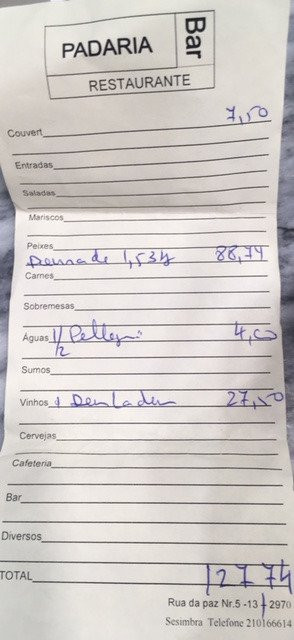 PADARIA Bar
RESTAURANTE
Couvert 7,50
Entradas
Saladas
Mariscos
Peixes
1,53 88,74
Carnes
Sobremesas
Águas 1/2 Pellegri 4,00
Sumos
Vinhos 1 27,50
Cervejas
Cafeteria
Bar
Diversos
TOTAL 127 74
Rua da paz Nr.5 -13 2970
Sesimbra Telefone 210166614